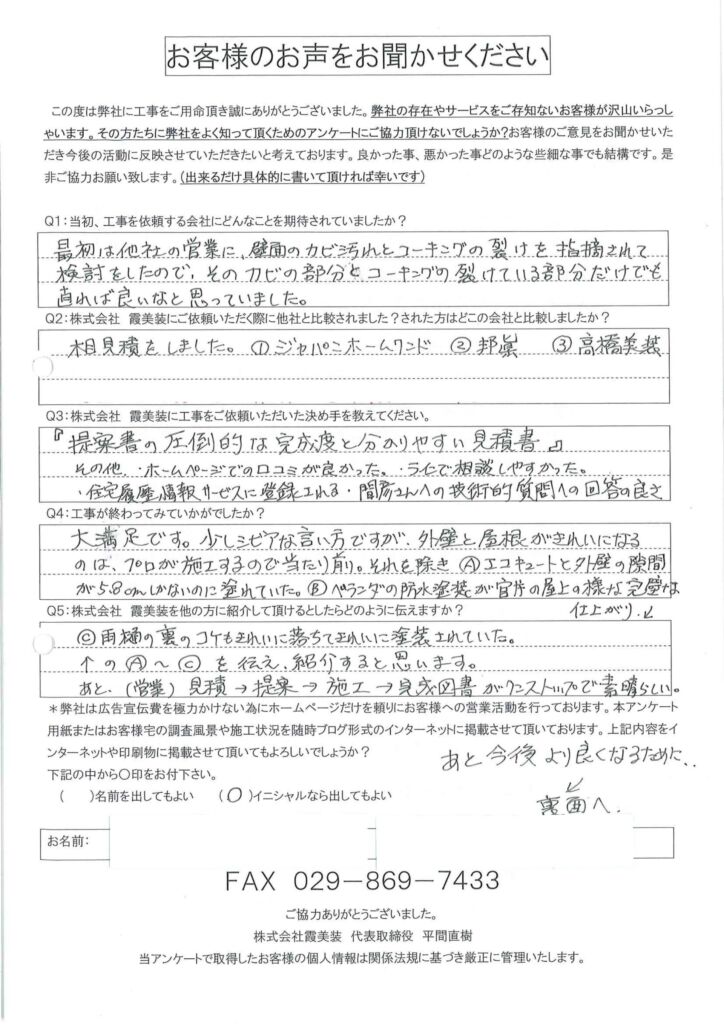 お客様のお声をお聞かせください
この度は弊社に工事をご用命頂き誠にありがとうございました。弊社の存在やサービスをご存知ないお客様が沢山いらっし
ゃいます。その方たちに弊社をよく知って頂くためのアンケートにご協力頂けないでしょうか?お客様のご意見をお聞かせいた
だき今後の活動に反映させていただきたいと考えております。良かった事、悪かった事どのような些細な事でも結構です。是
非ご協力お願い致します。(出来るだけ具体的に書いて頂ければ幸いです)
Q1:当初、工事を依頼する会社にどんなことを期待されていましたか?
最初は他社の営業に、壁面のカビ汚れとコーキングの裂けを指摘されて
検討をしたので、そのカビの部分とコーキングの裂けている部分だけでも
直れば良いなと思っていました。
Q2:株式会社 霞美装にご依頼いただく際に他社と比較されました?された方はどこの会社と比較しましたか?
相見積をしました。 ① ジャパンホームワンド ② 邦巣 ③ 高橋美装
Q3:株式会社 霞美装に工事をご依頼いただいた決め手を教えてください。
『提案書の圧倒的な完成度と分かりやすい見積書』
その他、・ホームページでの口コミが良かった。・ラインで相談しやすかった。
・住宅履歴情報サービスに登録される・間彦さんへの技術的質問への回答の良さ
Q4:工事が終わってみていかがでしたか?
大満足です。少しシビアな言い方ですが、外壁と屋根がきれいになる
のは、プロが施工するので当たり前。それを除き Ⓐエコキュートと外壁の隙間
が5.8cmしかないのに塗れていた。Ⓑベランダの防水塗装が官庁の屋上の様な完璧な
仕上がり↓
Q5:株式会社 霞美装を他の方に紹介して頂けるとしたらどのように伝えますか?
Ⓒ雨樋の裏のコケもきれいに落ちてきれいに塗装されていた。
↑のⒶ～Ⓒを伝え、紹介すると思います。
あと、(営業)見積→提案→施工→完成図書がワンストップで素晴らしい。
*弊社は広告宣伝費を極力かけない為にホームページだけを頼りにお客様への営業活動を行っております。本アンケート
用紙またはお客様宅の調査風景や施工状況を随時ブログ形式のインターネットに掲載させて頂いております。上記内容をイ
ンターネットや印刷物に掲載させて頂いてもよろしいでしょうか?
下記の中から〇印をお付下さい。
( )名前を出してもよい (○)イニシャルなら出してもよい
あと今後より良くなるために、、
↓
裏面へ.
お名前:
FAX 029-869-7433
ご協力ありがとうございました。
株式会社霞美装 代表取締役 平間直樹
当アンケートで取得したお客様の個人情報は関係法規に基づき厳正に管理いたします。